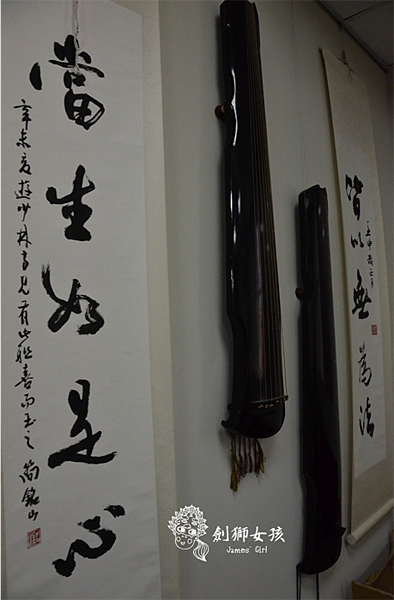 當生如是心
辛未夏遊少林寺見有此聯喜而書之 簡銘山
皆以無為法
壬申歲二月
劍獅女孩
James' Girl